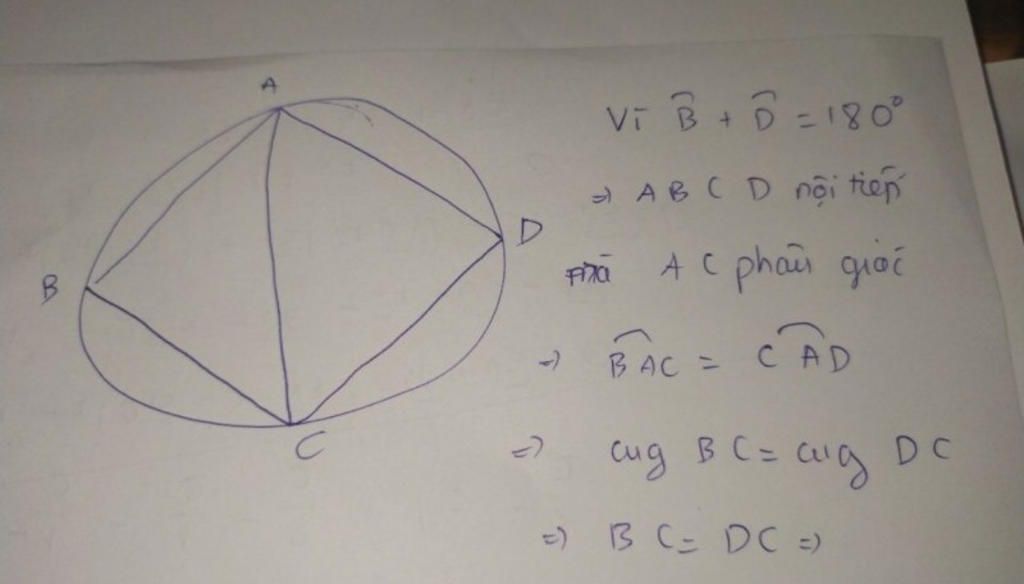 A
B
D
C
Vì B̂ + D̂ = 180°
=> A B C D nội tiếp
mà A C phân giác
=> B̂AC = CÂD
=> cug BC = cug DC
=> BC = DC =>